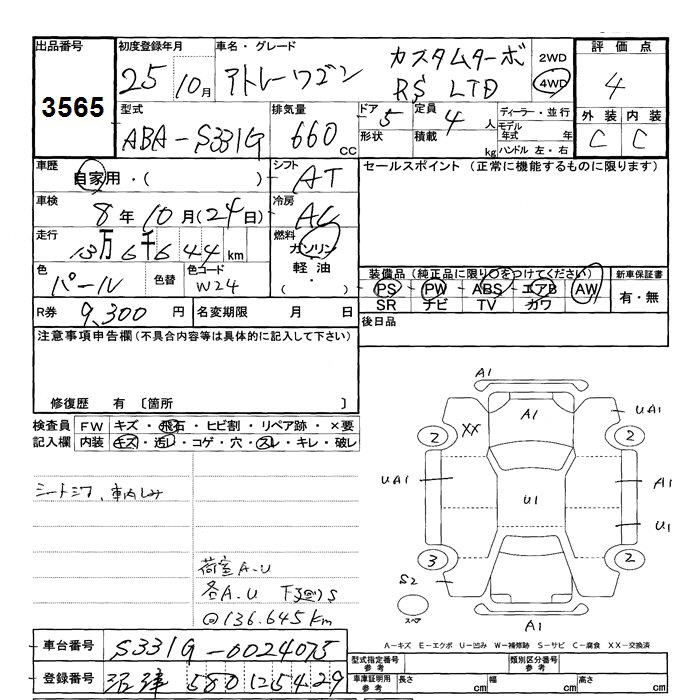 出品番号
3565
初度登録年月
25 10月
車名・グレード
アトレーワゴン
カスタムターボ
RS LTD
2WD
4WD
評価点
4
外装 内装
C C
型式
ABA-S331G
排気量
660 CC
ドア 5
形状
定員 4 人
積載 kg
ディーラー・並行
モデル年式 年
ハンドル 左・右
車歴
自家用・( )
シフト
AT
セールスポイント (正常に機能するものに限ります)
車検
8年10月(24日)
冷房
AC
走行
13万6千644km
燃料
ガソリン
軽油
・( )
色
パール
色替
色コード
W24
装備品 (純正品に限り○をつけてください)
PS・PW・ABS・エアB AW
SR ナビ TV カワ
新車保証書
有・無
R券 9,300円
名変期限 月 日
後日品
注意事項申告欄(不具合内容等は具体的に記入して下さい)
修復歴 有 〔箇所 〕
検査員記入欄
FW キズ・飛石・ヒビ割・リペア跡・×要
内装 キズ・汚レ・コゲ・穴・スレ・キレ・破レ
シートシワ、車内しみ
荷室A.U
各A.U 下回りS
@136.645km
A1
A1
XX
UA1
2
2
UA1
U1
A1
U1
3
2
S2
スペア
A1
A-キズ E-エクボ U-凹み W-補修跡 S-サビ C-腐食 XX-交換済
車台番号 S331G-0024075
登録番号 沼津 580 い 5429
型式指定番号 参考
類別区分番号 参考
車庫証明用 参考
長さ cm
幅 cm
高さ cm